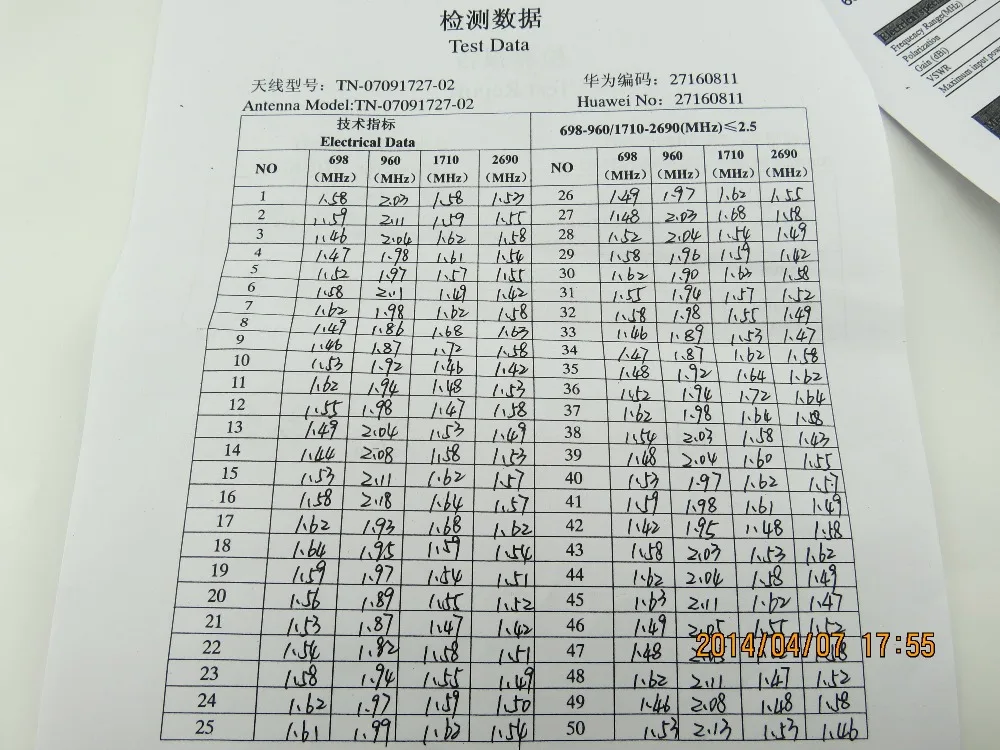 检测数据
Test Data
天线型号：TN-07091727-02 华为编码：27160811
Antenna Model:TN-07091727-02 Huawei No：27160811
技术指标
Electrical Data
698-960/1710-2690(MHz)≤2.5
NO 698 (MHz) 960 (MHz) 1710 (MHz) 2690 (MHz) NO 698 (MHz) 960 (MHz) 1710 (MHz) 2690 (MHz)
1 1.58 2.03 1.58 1.53 26 1.49 1.97 1.62 1.55
2 1.59 2.11 1.59 1.55 27 1.48 2.03 1.68 1.58
3 1.46 2.04 1.62 1.58 28 1.52 2.04 1.54 1.49
4 1.47 1.98 1.61 1.54 29 1.58 1.96 1.59 1.42
5 1.52 1.97 1.57 1.55 30 1.62 1.90 1.63 1.58
6 1.58 2.11 1.49 1.42 31 1.55 1.94 1.57 1.52
7 1.62 1.98 1.62 1.58 32 1.58 1.98 1.55 1.49
8 1.49 1.86 1.68 1.63 33 1.46 1.89 1.53 1.47
9 1.46 1.87 1.72 1.58 34 1.47 1.87 1.62 1.58
10 1.53 1.92 1.46 1.42 35 1.48 1.92 1.64 1.62
11 1.62 1.94 1.48 1.53 36 1.52 1.94 1.72 1.64
12 1.55 1.98 1.47 1.58 37 1.62 1.98 1.64 1.58
13 1.49 2.04 1.53 1.49 38 1.54 2.03 1.58 1.43
14 1.44 2.08 1.58 1.53 39 1.48 2.04 1.60 1.55
15 1.53 2.11 1.62 1.57 40 1.53 1.97 1.62 1.57
16 1.58 2.18 1.64 1.57 41 1.59 1.98 1.61 1.49
17 1.62 1.93 1.68 1.62 42 1.42 1.95 1.48 1.58
18 1.64 1.95 1.59 1.54 43 1.58 2.03 1.53 1.62
19 1.59 1.97 1.54 1.51 44 1.62 2.04 1.58 1.49
20 1.56 1.89 1.55 1.52 45 1.63 2.11 1.62 1.47
21 1.53 1.87 1.47 1.42 46 1.49 2.05 1.55 1.52
22 1.54 1.82 1.58 1.51 47 1.48
23 1.58 1.94 1.55 1.49 48 1.62 2.11 1.47 1.52
24 1.62 1.97 1.59 1.50 49 1.46 2.08 1.48 1.58
25 1.61 1.99 1.62 1.54 50 1.53 2.13 1.53 1.46
2014/04/07 17:55
Frequency Range(MHz)
Polarization
Gain (dBi)
VSWR
Maximum input